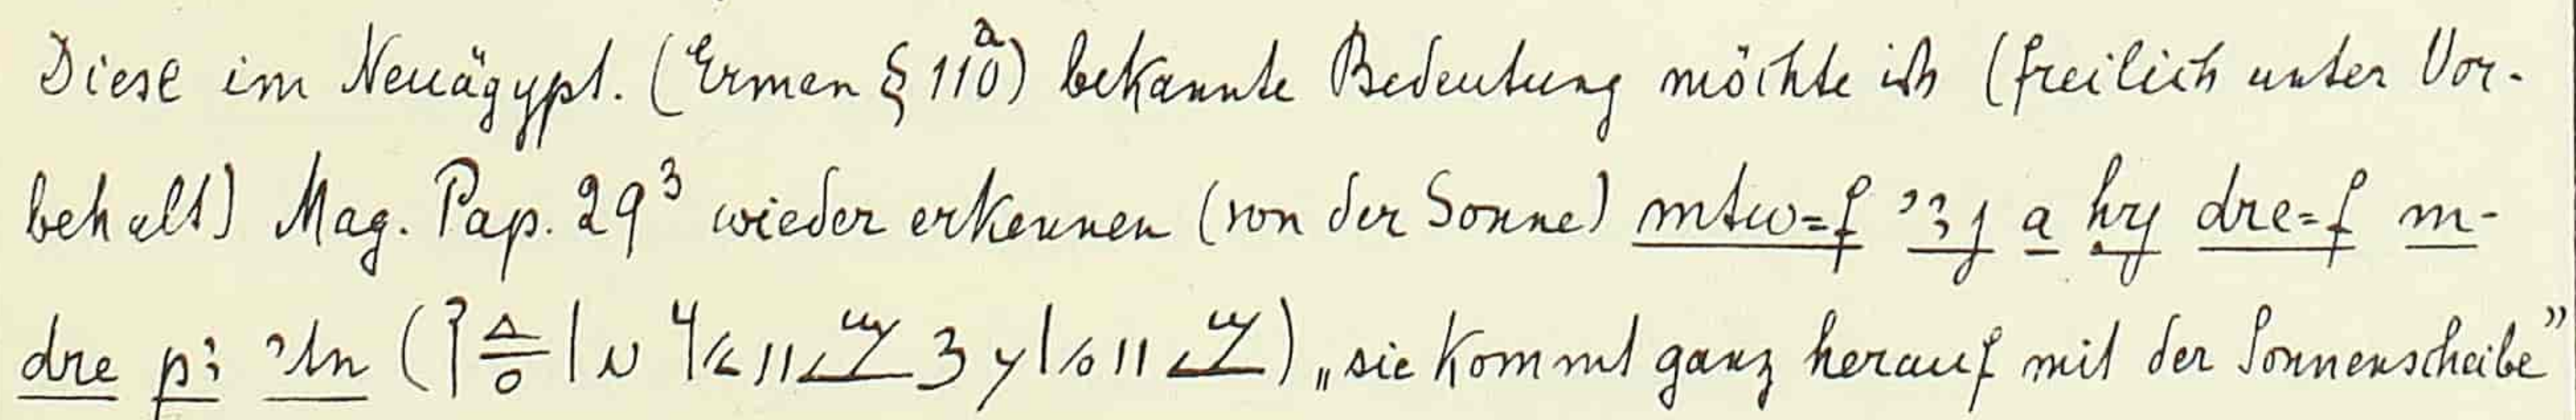 Diese im Neuägypt. (Erman § 110ᵃ) bekannte Bedeutung möchte ich (freilich unter Vor-
behalt) Mag. Pap. 29³ wieder erkennen (von der Sonne) mtw=f ꜥꜣj a ḥry dre=f m-
dre pꜣ ꜥtn ( ) „sie kommt ganz herauf mit der Sonnenscheibe”